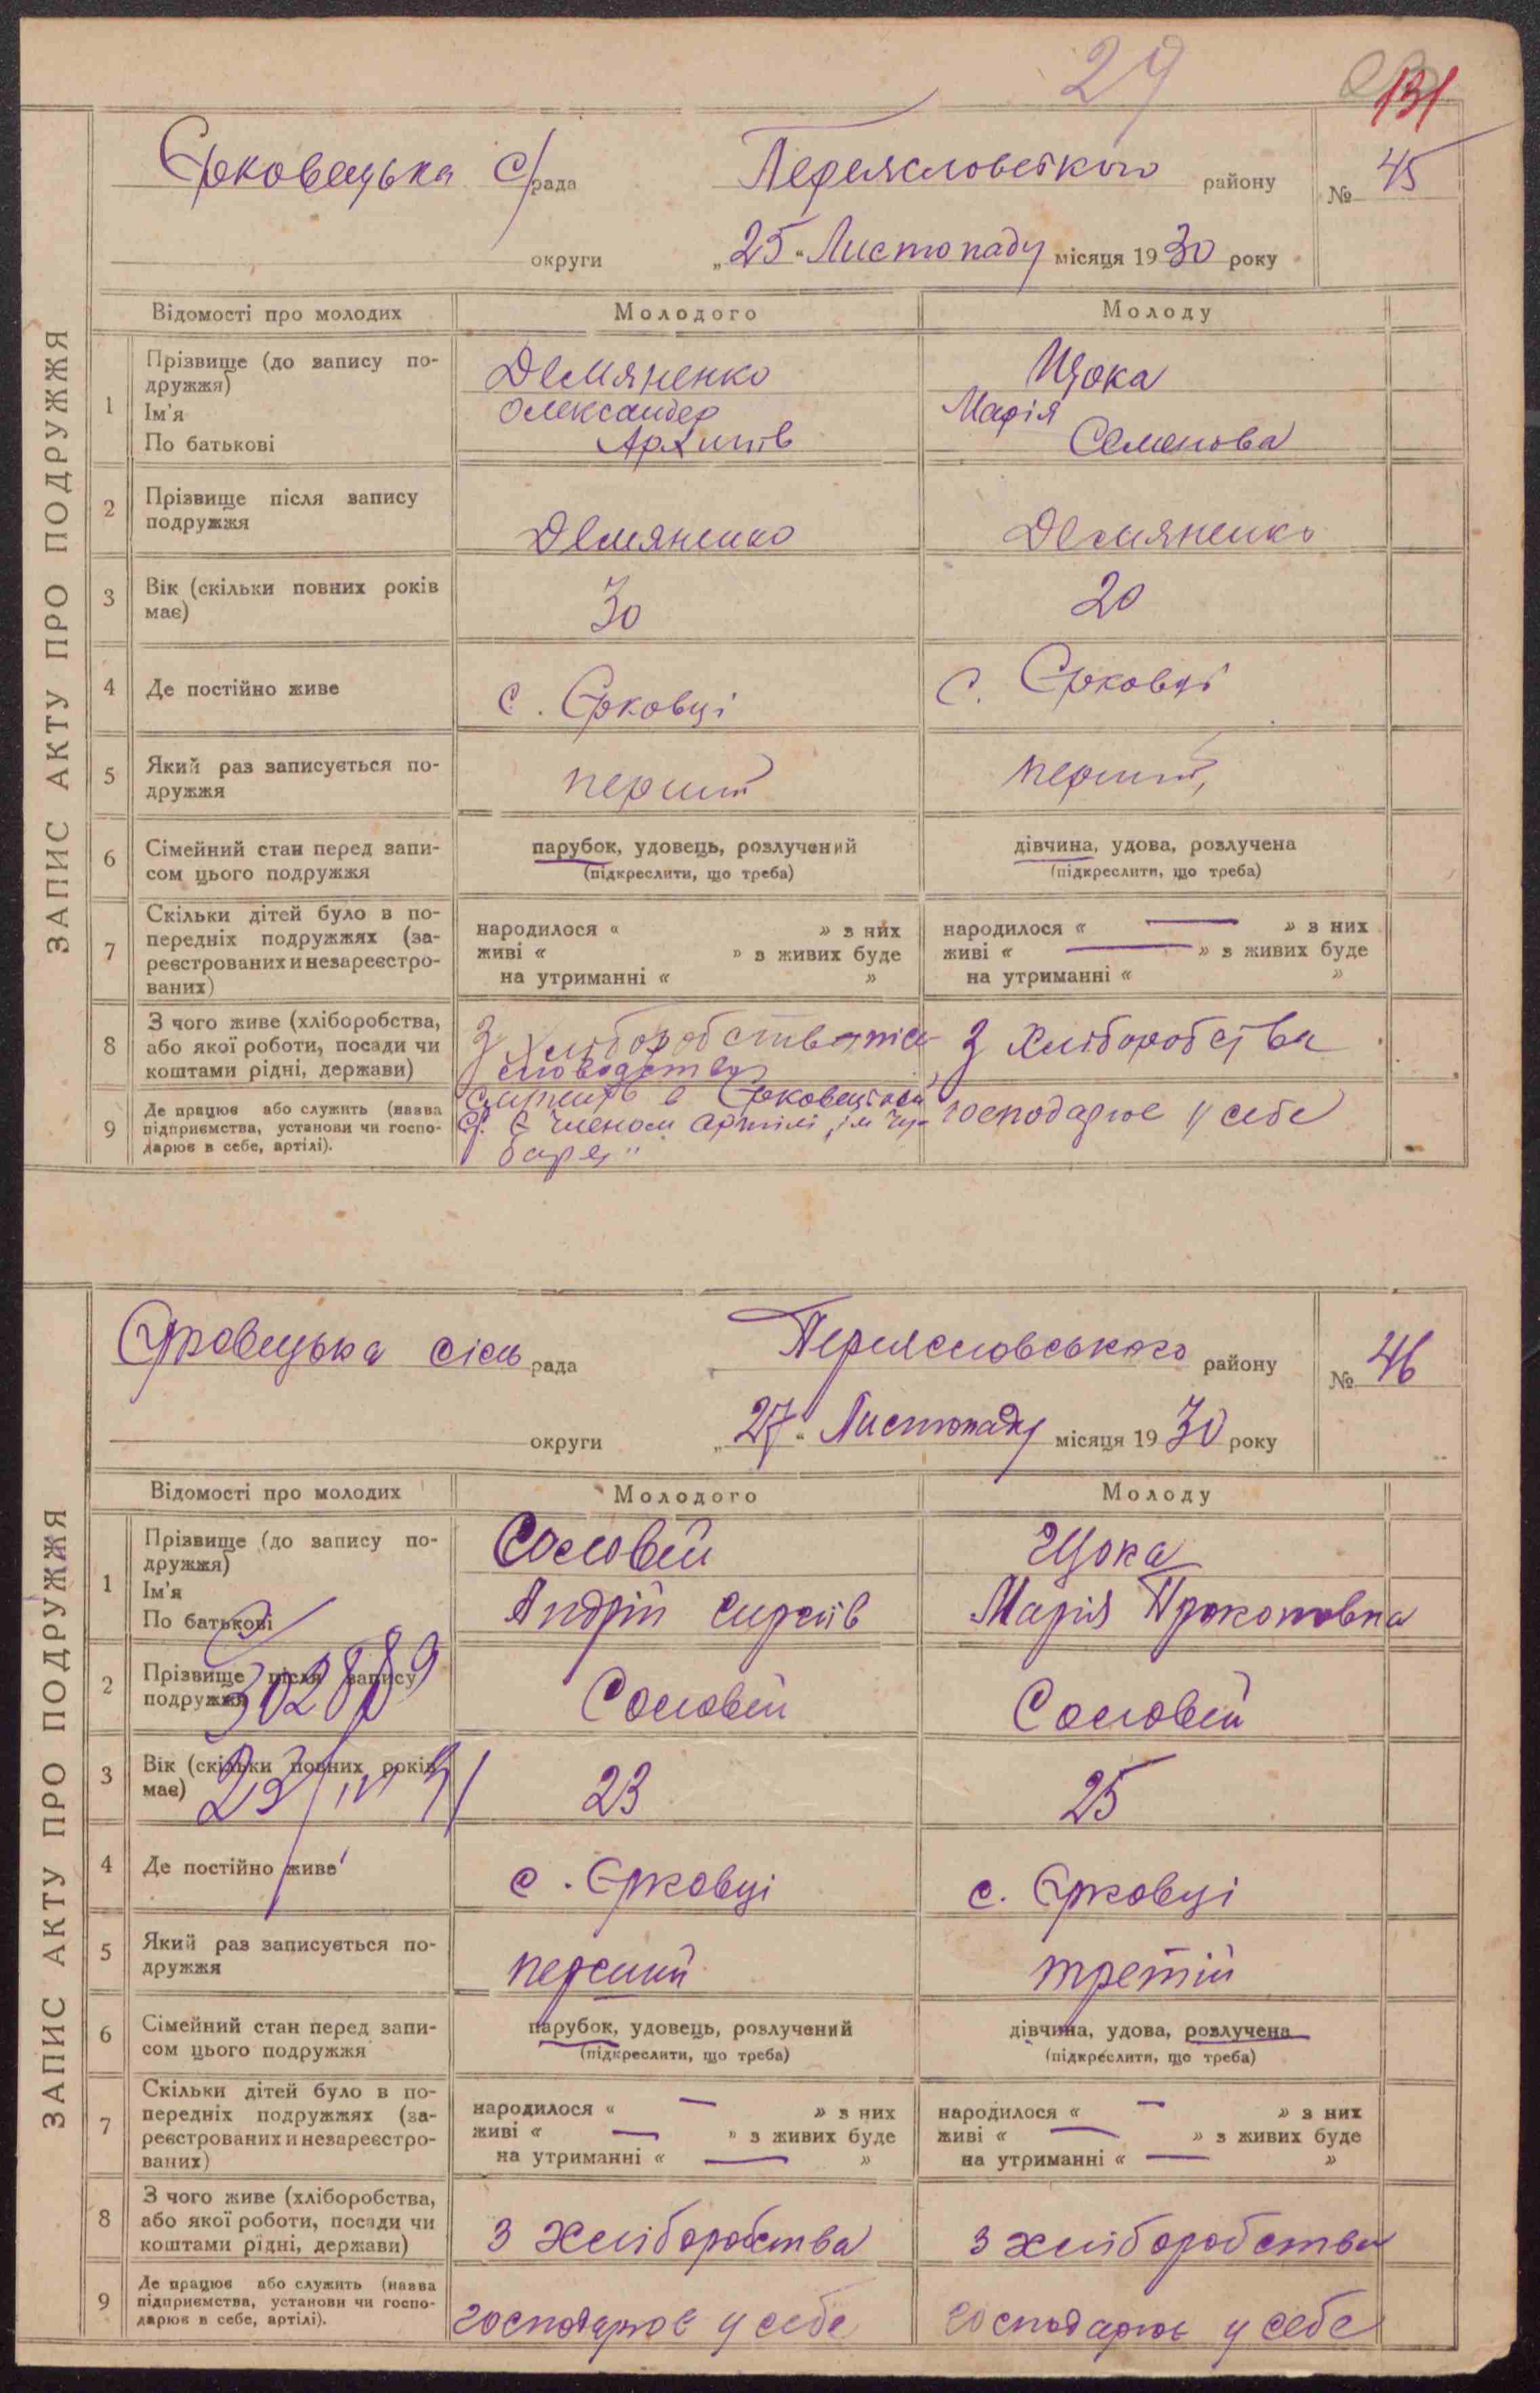 29
131
Єрковецька с/рада Переясловського району № 45
округи „25“ Листопаду місяця 1930 року
ЗАПИС АКТУ ПРО ПОДРУЖЖЯ
Відомості про молодих Молодого Молоду
1 Прізвище (до запису по-
дружжя) Демяненко Цюка
Ім'я Олександер Марія
По батькові Архипів Семенова
2 Прізвище після запису
подружжя Демяненко Демяненко
3 Вік (скільки повних років
має) 30 20
4 Де постійно живе с. Єрковці с. Єрковці
5 Який раз записується по-
дружжя перший перший
6 Сімейний стан перед запи-
сом цього подружжя
парубок, удовець, розлучений
(підкреслити, що треба)
дівчина, удова, розлучена
(підкреслити, що треба)
7 Скільки дітей було в по-
передніх подружжях (за-
реєстрованих и незареєстро-
ваних)
народилося « » з них
живі « » з живих буде
на утриманні « »
народилося « — » з них
живі « — » з живих буде
на утриманні « »
8 З чого живе (хліборобства,
або якої роботи, посади чи
коштами рідні, держави)
З хліборобства
З хліборобства
9 Де працює або служить (назва
підприємства, установи чи госпо-
дарює в себе, артілі).
в Єрковецькій
Є членом артілі ім Чу-
баря"
господарює у себе
Єрковецька сіль рада Переясловського району № 46
округи „27“ Листопаду місяця 1930 року
ЗАПИС АКТУ ПРО ПОДРУЖЖЯ
Відомості про молодих Молодого Молоду
1 Прізвище (до запису по-
дружжя) Соловей Цюка
Ім'я
По батькові Андрій Марія Прокоповна
2 Прізвище після запису
подружжя Соловей Соловей
302889
3 Вік (скільки повних років
має) 23 25
4 Де постійно живе с. Єрковці с. Єрковці
5 Який раз записується по-
дружжя перший третій
6 Сімейний стан перед запи-
сом цього подружжя
парубок, удовець, розлучений
(підкреслити, що треба)
дівчина, удова, розлучена
(підкреслити, що треба)
7 Скільки дітей було в по-
передніх подружжях (за-
реєстрованих и незареєстро-
ваних)
народилося « — » з них
живі « — » з живих буде
на утриманні « — »
народилося « — » з них
живі « — » з живих буде
на утриманні « — »
8 З чого живе (хліборобства,
або якої роботи, посади чи
коштами рідні, держави)
З хліборобства
З хліборобства
9 Де працює або служить (назва
підприємства, установи чи госпо-
дарює в себе, артілі).
господарює у себе
господарює у себе